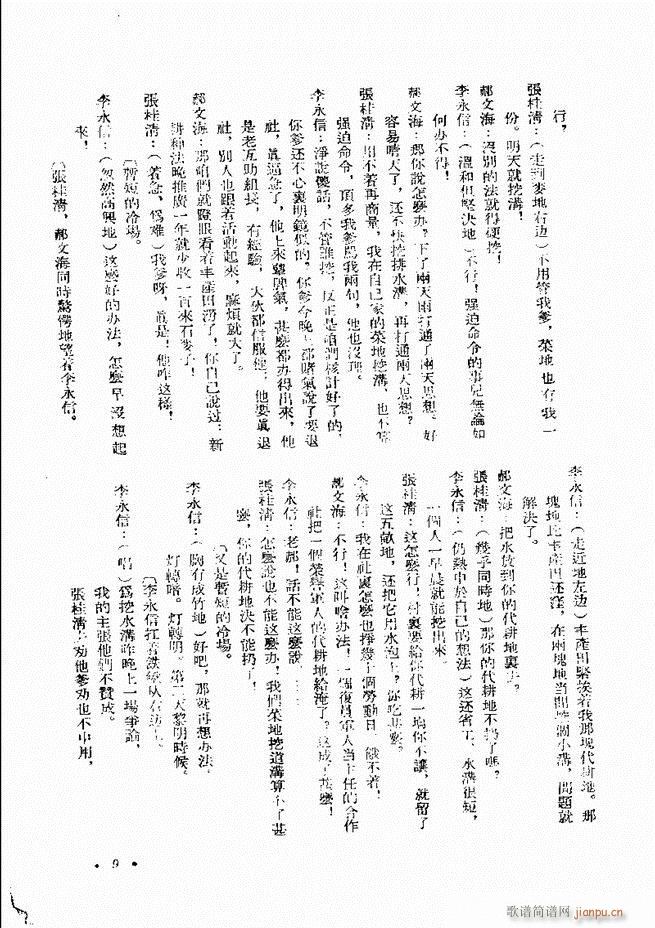 行，
張桂清：（走到麥地右边）不用管我爹，菜地也有我一
份。明天就挖溝！
郝文海：没别的法就得硬挖！
李永信：（溫和但堅决地）不行！强迫命令的事兒無論如
何办不得！
郝文海：那你說怎麽办？下了兩天雨打通了兩天思想。好
容易晴天了，还不快挖排水溝，再打通兩天思想？
張桂清：用不着再商量，我在自己家的菜地挖溝，也不算
强迫命令，頂多我爹罵我兩句，他也沒理。
李永信：淨說傻話，不管誰挖，反正是咱們核計好了的，
你爹还不心裏明鏡似的。你爹今晚上都賭氣說了要退
社，眞逼急了，他上來犟脾氣，甚麽都办得出來，他
是老互助組長，有經驗，大伙都信服他，他要眞退
社，别人也跟着活動起來，麻煩就大了。
郝文海：那咱們就瞪眼看着丰產田澇了！你自己說过：新
耕种法晚推廣一年就少收一百來石麥子！
張桂清：（着急，爲难）我爹呀，眞是！他咋这樣！
〔暫短的冷場。
李永信：（忽然高興地）这麽好的办法，怎麽早沒想起
來！
〔張桂清，郝文海同時驚愕地望着李永信。
李永信：（走近地左边）丰產田緊挨着我那塊代耕地。那
塊地比丰產田还窪，在兩塊地当間挖個小溝，問題就
解决了。
郝文海：把水放到你的代耕地裏去。
張桂清：（幾乎同時地）那你的代耕地不扔了嗎？
李永信：（仍熱中於自己的想法）这还省工，水溝很短，
一個人一早晨就能挖出來。
張桂清：这怎麽行！社裏要給你代耕一垧你不讓，就留了
这五畝地，还把它用水泡上？你吃甚麽。
李永信：我在社裏怎麽也掙幾十個勞動日，餓不着！
郝文海：不行！这叫啥办法！一個復員軍人当主任的合作
社把一個榮譽軍人的代耕地給淹了。这成了甚麽！
李永信：老郝！話不能这麽說……
張桂清：怎麽說也不能这麽办！我們菜地挖道溝算不了甚
麽，你的代耕地决不能扔！
〔又是暫短的冷場。
李永信：（胸有成竹地）好吧，那就再想办法。
灯轉暗。灯轉明。第二天黎明時候。
〔李永信扛着鐵锨从右边上。
李永信：（唱）爲挖水溝昨晚上一場爭論，
我的主張他們不贊成。
張桂清去劝他爹劝也不中用，
• 9 •
歌谱简谱网 jianpu.cn